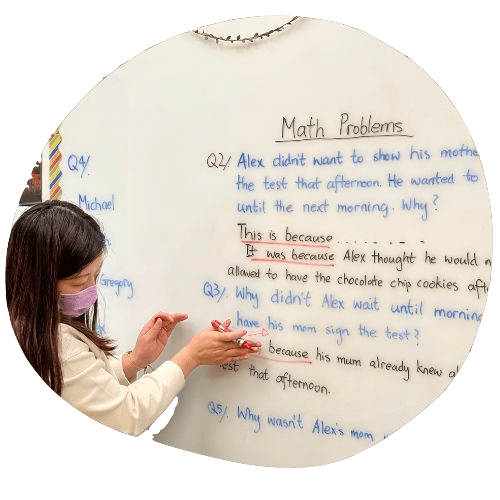 Math Problems
Q4/.
Michael
Gregory
Q2/ Alex didn't want to show his mothe
the test that afternoon. He wanted to
until the next morning. Why?
This is because . . . . . . - -
It was because Alex thought he would n
allowed to have the chocolate chip cookies aft
Q3/. Why didn't Alex wait until morning
have his mom sign the test?
because his mum already knew a
test that afternoon.
Q5/. Why wasn't Alex's mom